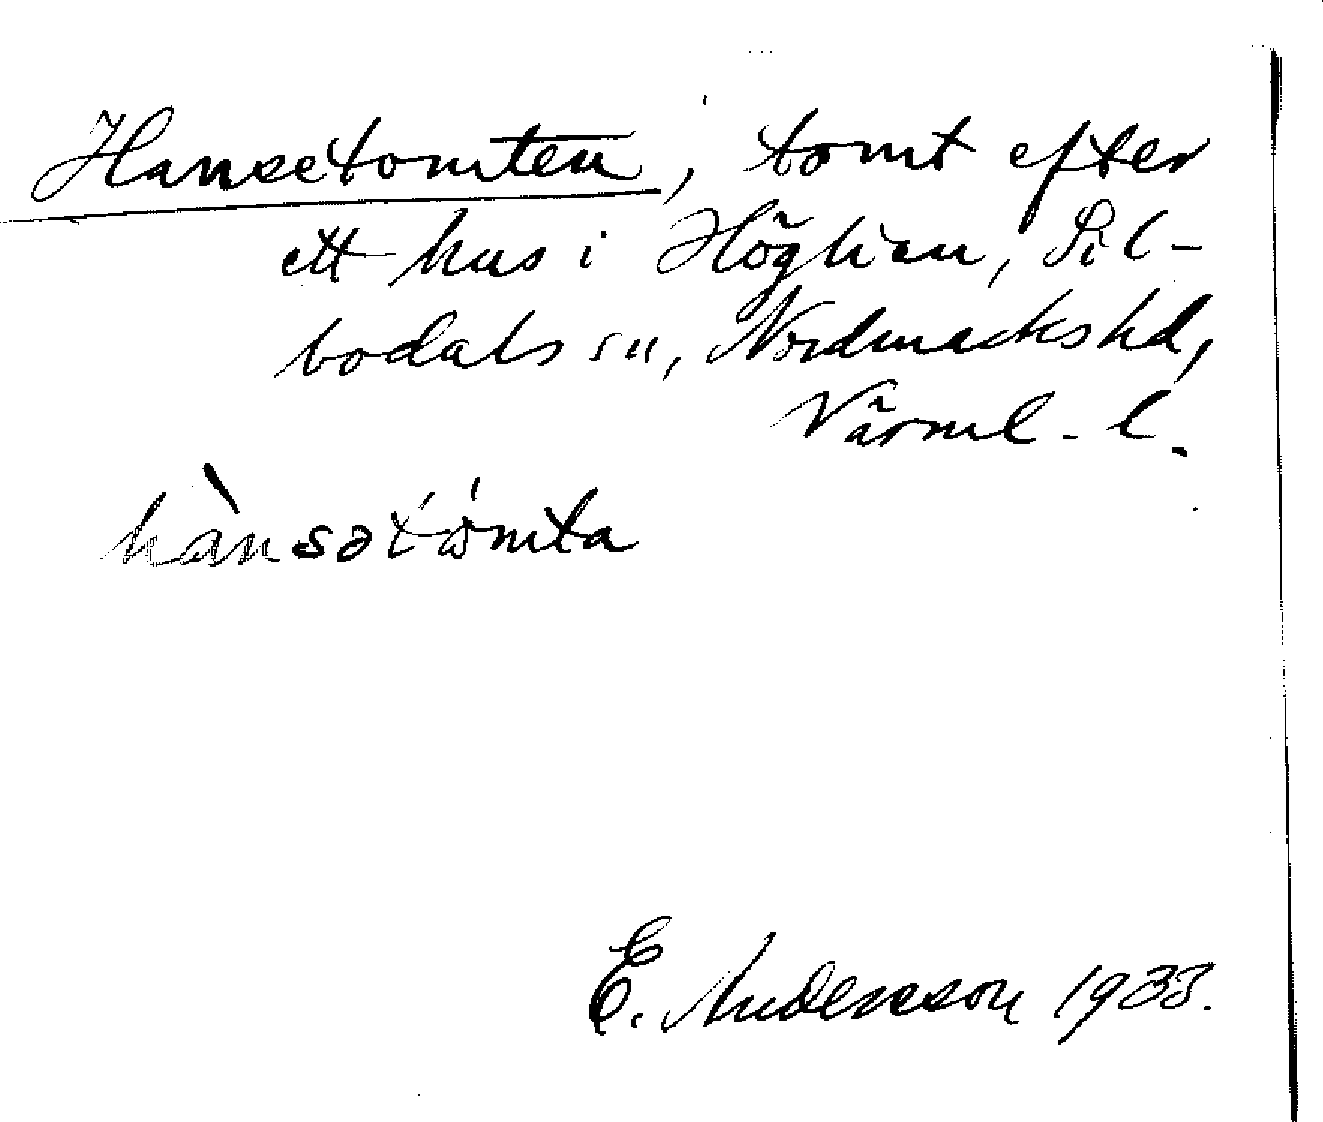 Hansetomten, tomt efter
ett hus i Höglian, Sil-
bodals sn, Nordmarks hd,
Värml. l.
hànsətómta
E. Andersson 1933.